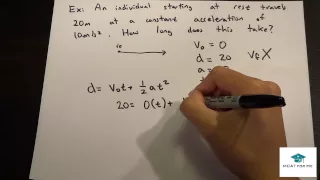 Ex: An individual starting at rest travels
20m at a constant acceleration of
10m/s². How long does this take?
V₀ = 0
d = 20 Vf X
a =
d = V₀t + ½at²
20 = 0(t) +